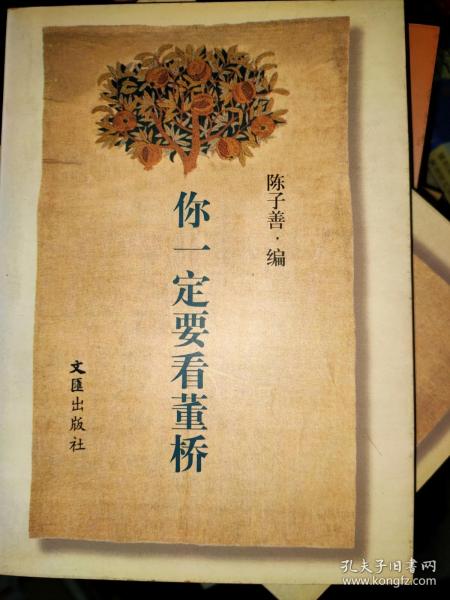 陈子善·编
你一定要看董桥
文匯出版社
孔夫子旧书网
www.kongfz.com